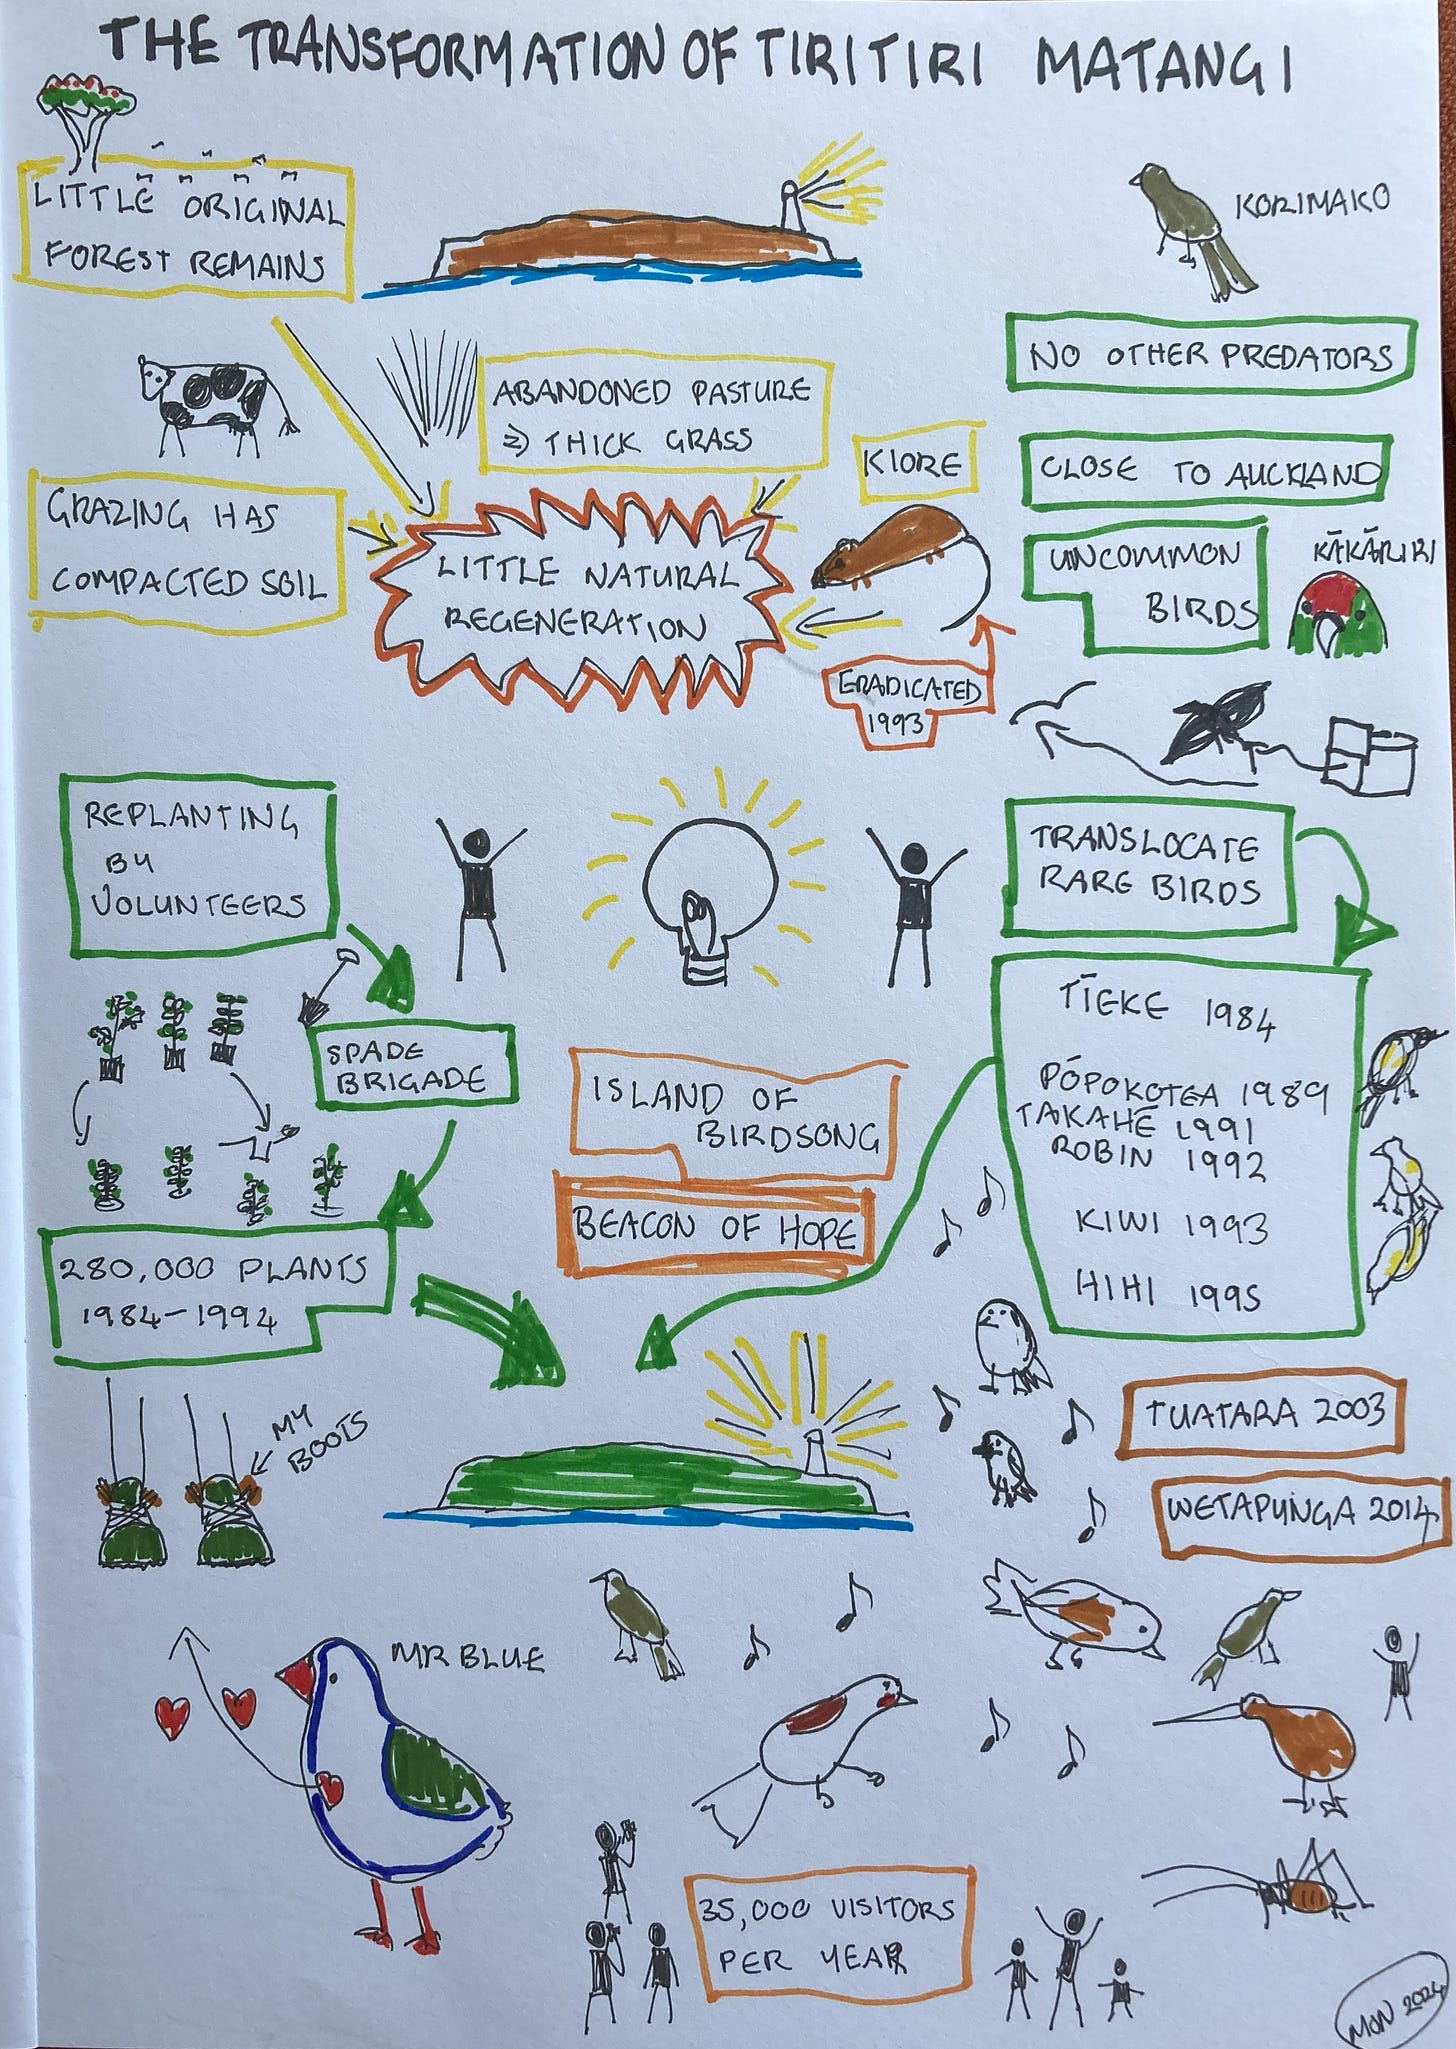 THE TRANSFORMATION OF TIRITIRI MATANGI
LITTLE ORIGINAL
FOREST REMAINS
KORIMAKO
NO OTHER PREDATORS
ABANDONED PASTURE
⇒ THICK GRASS
KIORE
CLOSE TO AUCKLAND
GRAZING HAS
COMPACTED SOIL
LITTLE NATURAL
REGENERATION
UNCOMMON
BIRDS
KĀKĀRIRI
ERADICATED
1993
REPLANTING
BY
VOLUNTEERS
TRANSLOCATE
RARE BIRDS
SPADE
BRIGADE
ISLAND OF
BIRDSONG
BEACON OF HOPE
TĪEKE 1984
PŌPOKOTEA 1989
TAKAHĒ 1991
ROBIN 1992
KIWI 1993
HIHI 1995
280,000 PLANTS
1984-1994
MY
BOOTS
TUATARA 2003
WETAPUNGA 2014
MR BLUE
35,000 VISITORS
PER YEAR
MON 2024